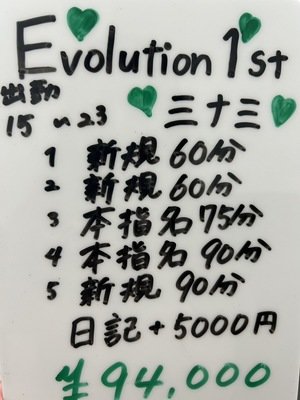 Evolution 1st
出勤
15〜23
三十三
1 新規60分
2 新規60分
3 本指名75分
4 本指名90分
5 新規90分
日記+5000円
¥94,000